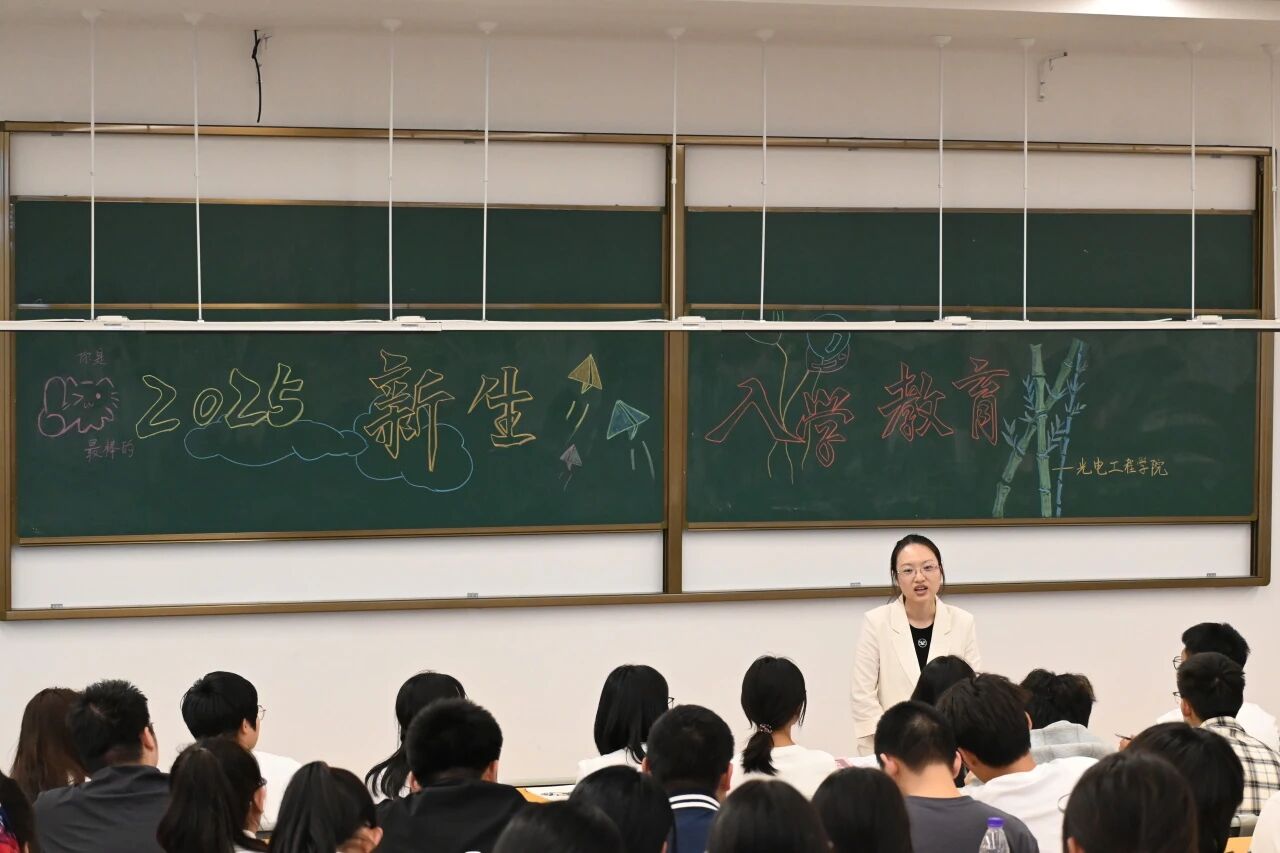 你是
最棒的
2025新生
入学教育
—光电工程学院